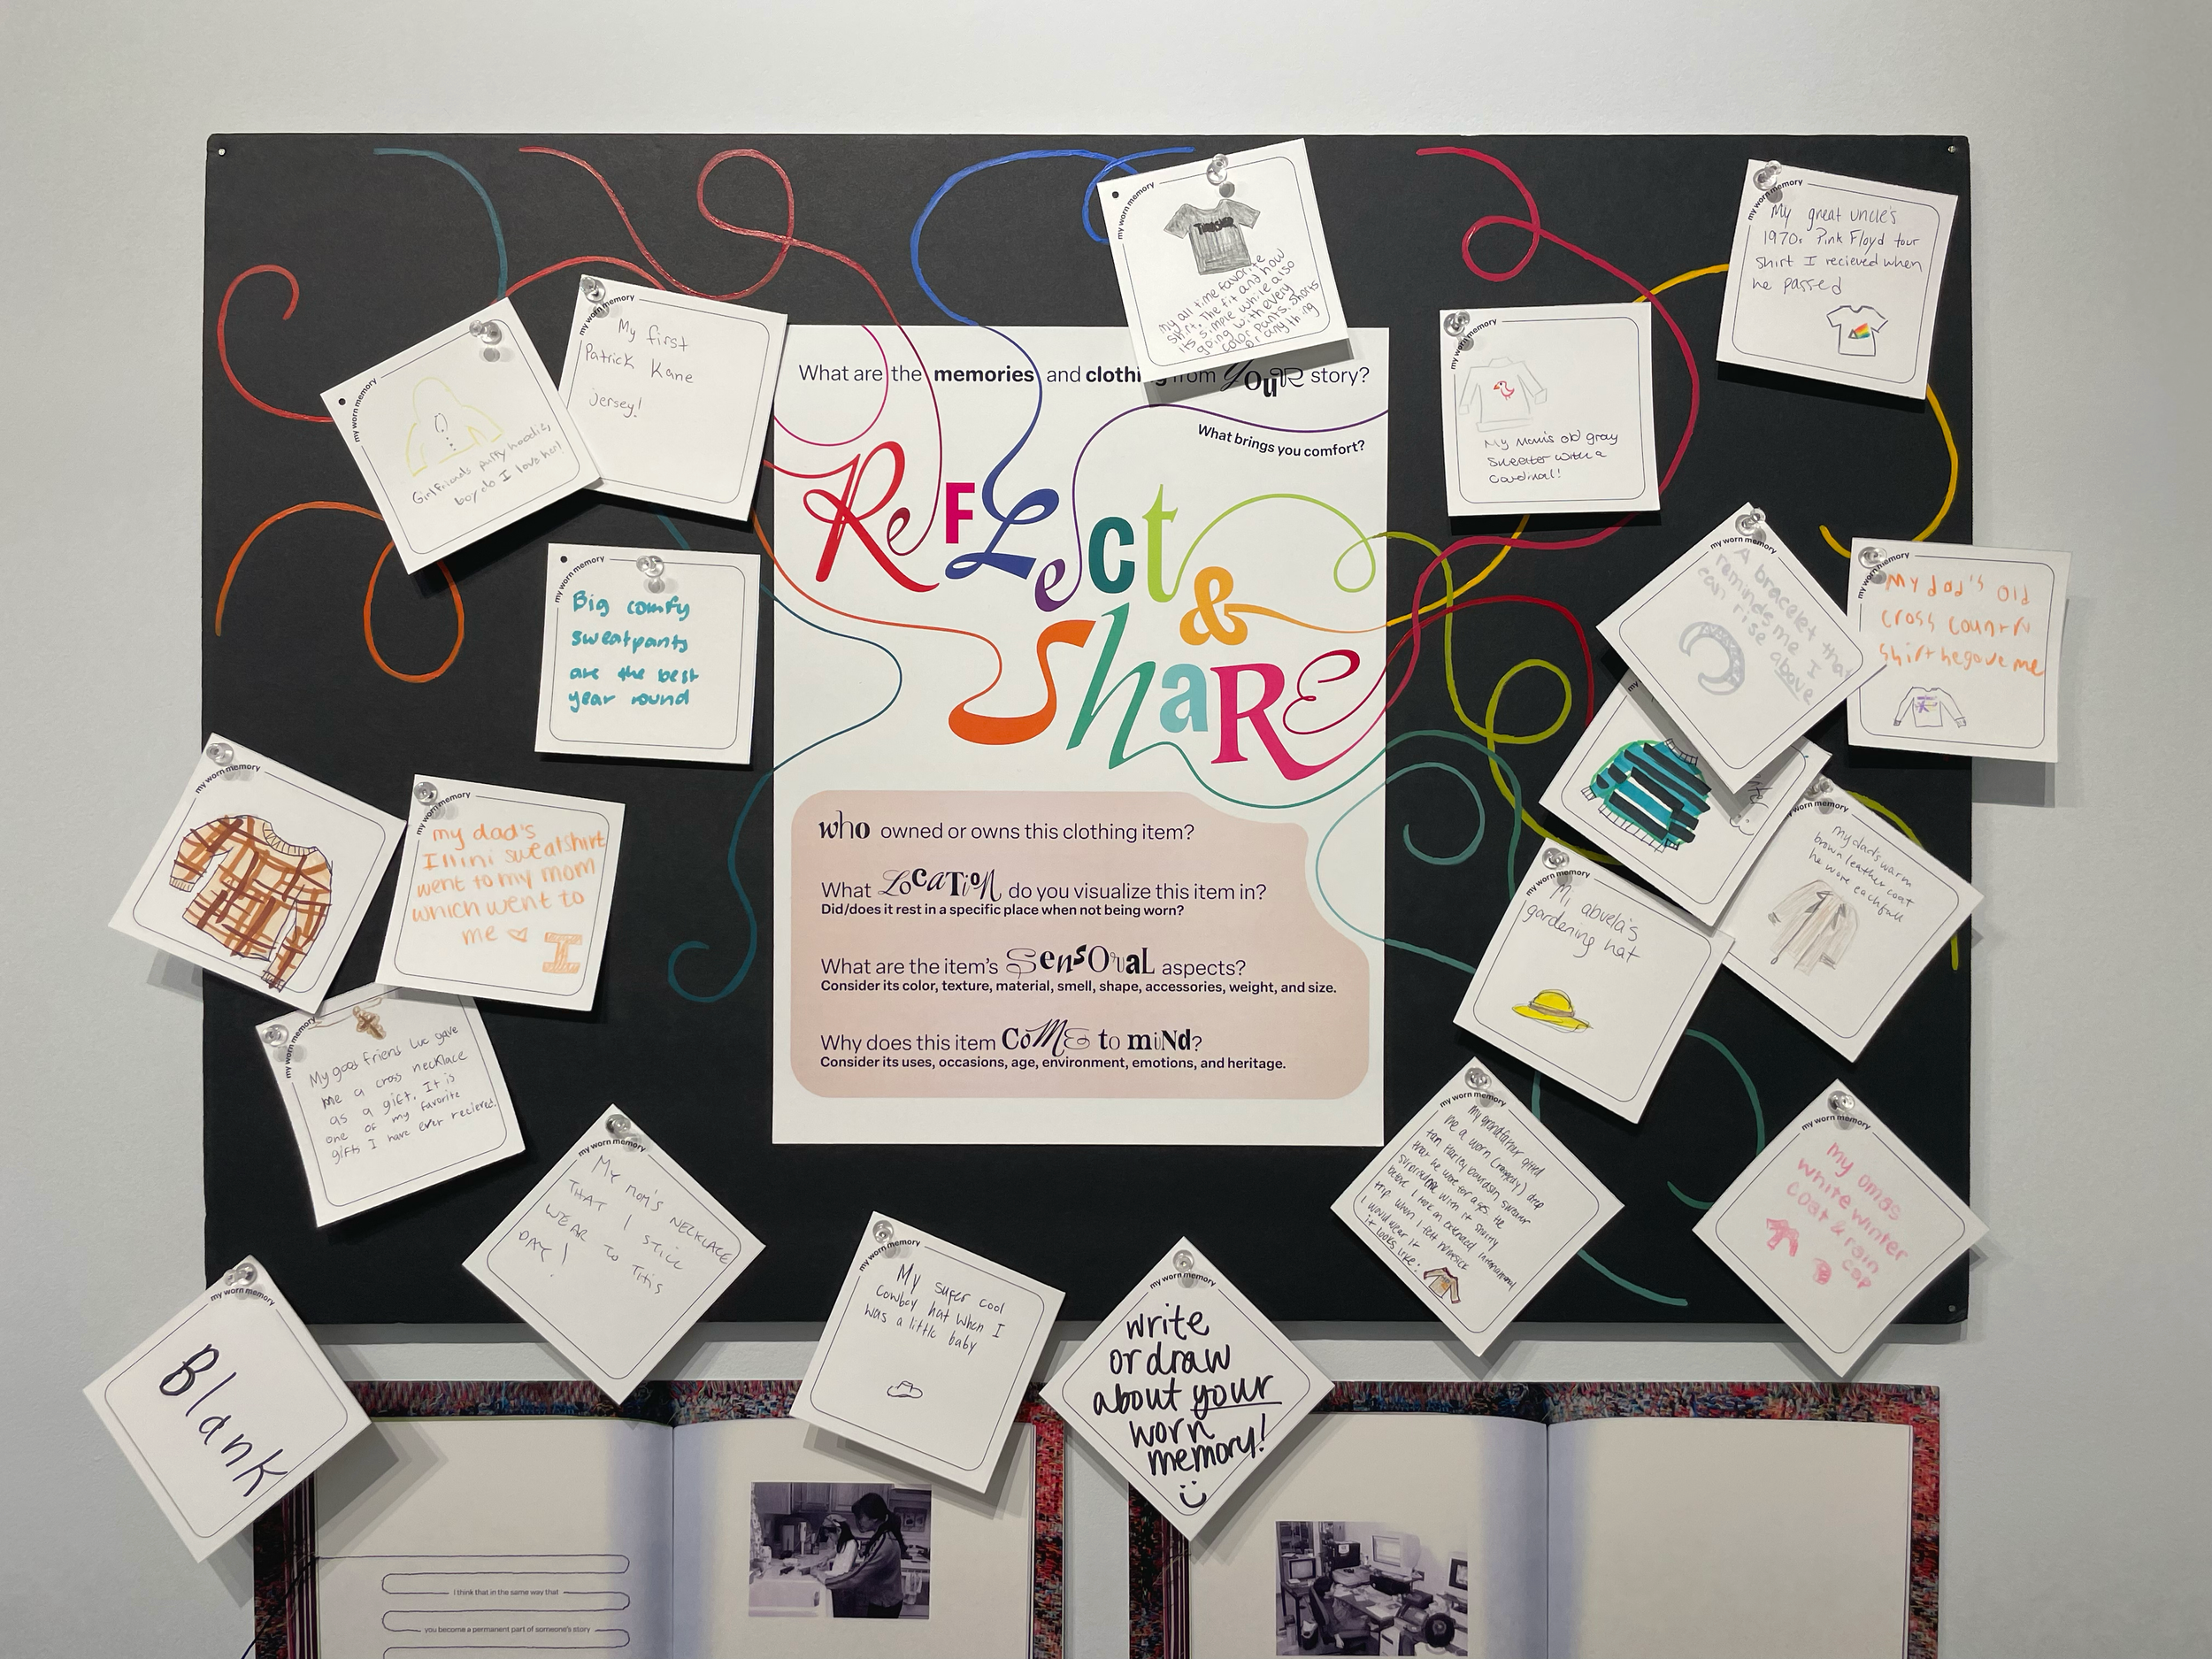 my worn memory
THRASHER
my all time favorite
shirt. The fit and how
its simple while also
going with every
color pants, shorts
or anything
my worn memory
My great uncle's
1970s Pink Floyd tour
shirt I recieved when
he passed
my worn memory
My first
Patrick Kane
jersey!
my worn memory
Girlfriends puffy hoodie,
boy do I love her!
my worn memory
My Mom's old gray
Sweater with a
Cardinal!
What are the memories and clothing from YOUR story?
What brings you comfort?
ReFLect
&
ShaRE
who owned or owns this clothing item?
What LOCATION do you visualize this item in?
Did/does it rest in a specific place when not being worn?
What are the item's SensORaL aspects?
Consider its color, texture, material, smell, shape, accessories, weight, and size.
Why does this item CoME to miNd?
Consider its uses, occasions, age, environment, emotions, and heritage.
my worn memory
Big comfy
sweatpants
are the best
year round
my worn memory
A bracelet that
reminds me I
can rise above
my worn memory
My dad's old
cross country
shirt he gave me
my worn memory
my worn memory
my dad's
Illini sweatshirt
went to my mom
which went to
me
I
my worn memory
my dad's warm
brown leather coat
he wore each fall
my worn memory
My abuela's
gardening hat
my worn memory
My good friend Luc gave
me a cross necklace
as a gift. It is
one of my favorite
gifts I have ever recieved.
my worn memory
My mom's NECKLACE
THAT I STILL
WEAR TO THIS
DAY!
my worn memory
My grandfather gifted
me a worn (raggedy) deep
tan Harley Davidson sweater
that he wore for ages. He
surprised me with it shortly
before I took an extended international
trip. When I felt homesick
I would wear it.
it looks like:
my worn memory
my omas
white winter
coat & rain
cap
my worn memory
My super cool
cowboy hat when I
was a little baby
my worn memory
write
or draw
about your
worn
memory!
my worn memory
Blank
I think that in the same way that
you become a permanent part of someone's story